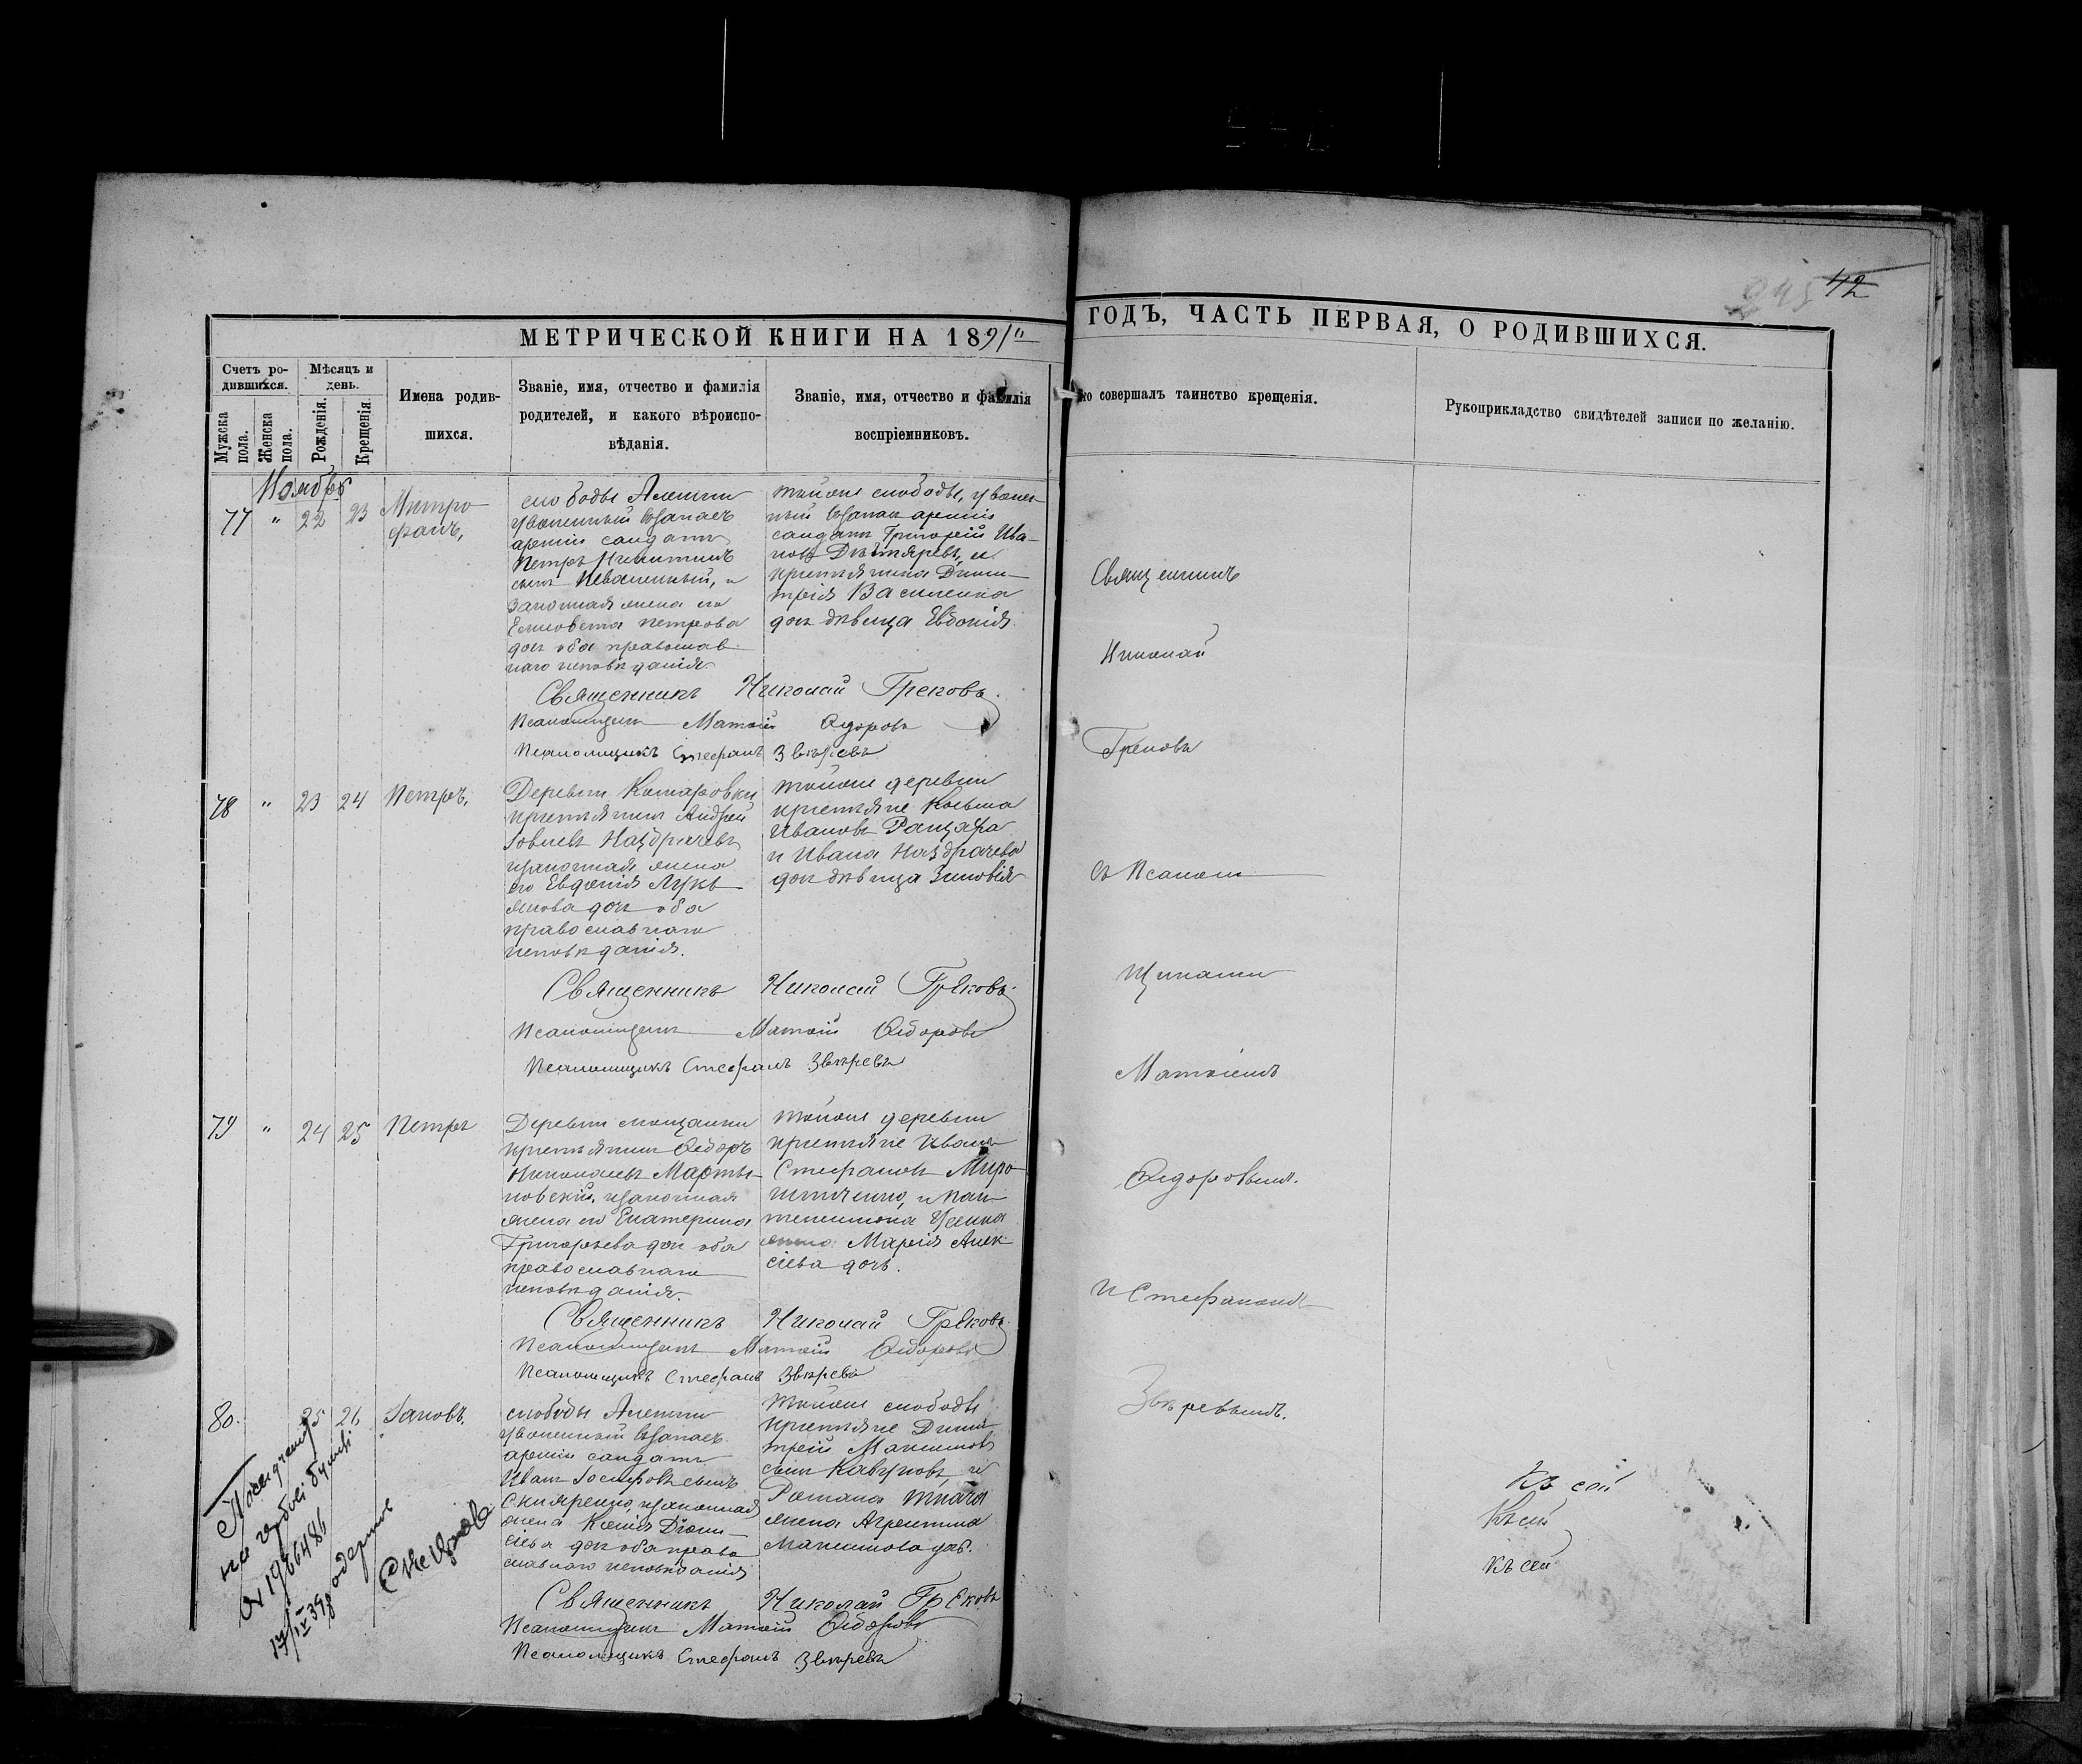 42
МЕТРИЧЕСКОЙ КНИГИ НА 1891 ГОДЪ, ЧАСТЬ ПЕРВАЯ, О РОДИВШИХСЯ.
Счетъ ро-
дившихся.
Мужска пола.
Женска пола.
Мѣсяцъ и
день.
Рожденія.
Крещенія.
Имена родив-
шихся.
Званіе, имя, отчество и фамилія
родителей, и какого вѣроиспо-
вѣданія.
Званіе, имя, отчество и фамилія
воспріемниковъ.
совершалъ таинство крещенія.
Рукоприкладство свидѣтелей записи по желанію.
Ноябрь
77 " 22 23
Митро-
фанъ,
слободы
уволенный въ запасъ
арміи солдатъ
Петръ Никитинъ
сынъ и
законная жена его
Елисавета Петрова
доч оба православ-
наго исповѣданія
тойже слободы, уволен-
ный въ запас арміи
солдатъ Григорій Ива-
новъ Дѣхтяревъ, и
крестьянина Дими-
трія Василенка
доч дѣвица Евдокія.
Священникъ Николай Грековъ.
Псаломщикъ Матѳій Ѳедоровъ
Псаломщикъ Стефанъ Звѣревъ
78 " 23 24
Петръ,
Деревни Комаровки
крестьянин Андрей
Іовлевъ Наздрачевъ
изаконная жена
его Евдокія Лукь-
янова доч оба
православнаго
исповѣданія.
тойже деревни
крестьяне Косьма
Ивановъ
и Ивана Наздрачева
доч дѣвица Зиновія
Священникъ Николай Грековъ.
Псаломщикъ Матѳій Ѳедоровъ
Псаломщикъ Стефанъ Звѣревъ
79 " 24 25
Петръ
Деревни
крестьянин Ѳедоръ
Николаевъ Марты-
новскій, изаконная
жена его Екатерина
Григорьева доч оба
православнаго
исповѣданія.
тойже деревни
крестьяне Иванъ
Стефановъ Миро-
шниченко, и Пан-
телеимона
жена Марія Алек-
сіева дочь.
Священникъ Николай Грековъ.
Псаломщикъ Матѳій Ѳедоровъ
Псаломщикъ Стефанъ Звѣревъ
80. 25 26
Іаковъ,
слободы
уволенный въ запасъ
арміи солдатъ
Иванъ Іосифовъ сынъ
Скляренко, изаконная
жена Ксенія Діони-
сіева доч оба право-
славнаго исповѣданія
тойже слободы
крестьяне Дими-
трій Максимовъ
сынъ Кавуновъ, и
Романа Ткача
жена Агрепина
Максимова доч.
Священникъ Николай Грековъ
Псаломщикъ Матѳій Ѳедоровъ
Псаломщикъ Стефанъ Звѣревъ
Священникъ
Николай
Грековъ
съ Псалом-
щиками
Матѳіемъ
Ѳедоровымъ.
и Стефаномъ
Звѣревымъ.
Къ сей
Къ сей
Къ сей